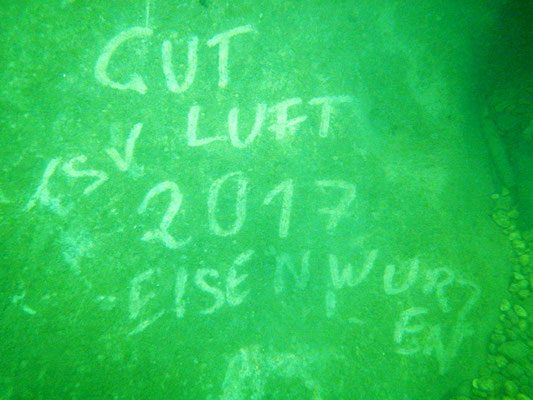 GUT
LUFT
TSV
2017
EISENWURZ
EN